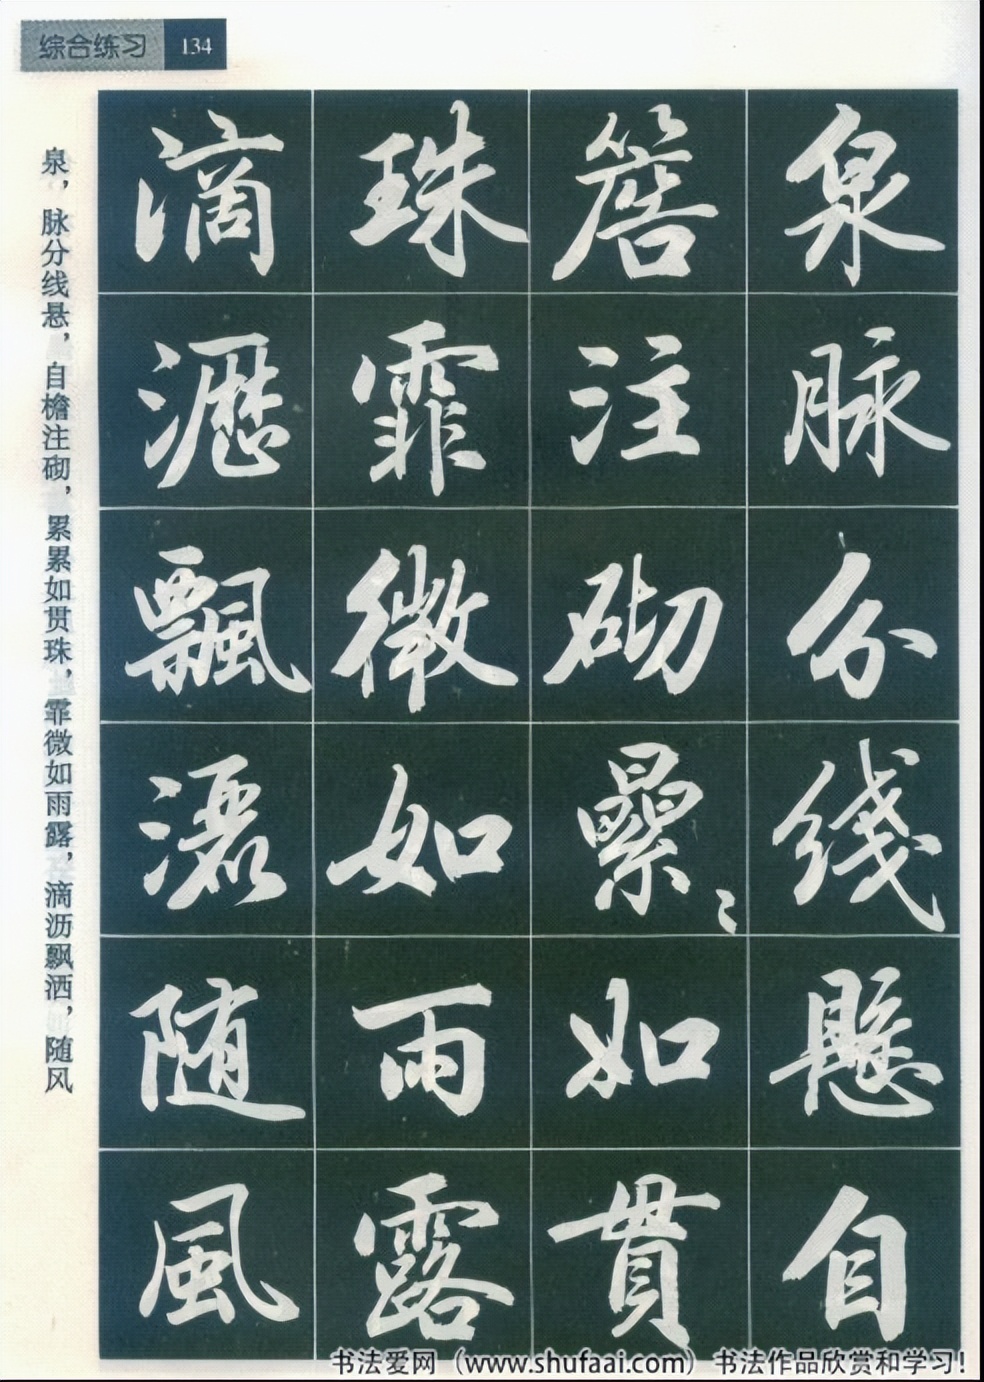 综合练习 134
泉脉分线悬自
簷注砌纍〻如貫
珠霏微如雨露
滴瀝飄灑随風
泉，脉分线悬，自檐注砌，累累如贯珠，霏微如雨露，滴沥飘洒，随风
书法爱网（www.shufaai.com）书法作品欣赏和学习！